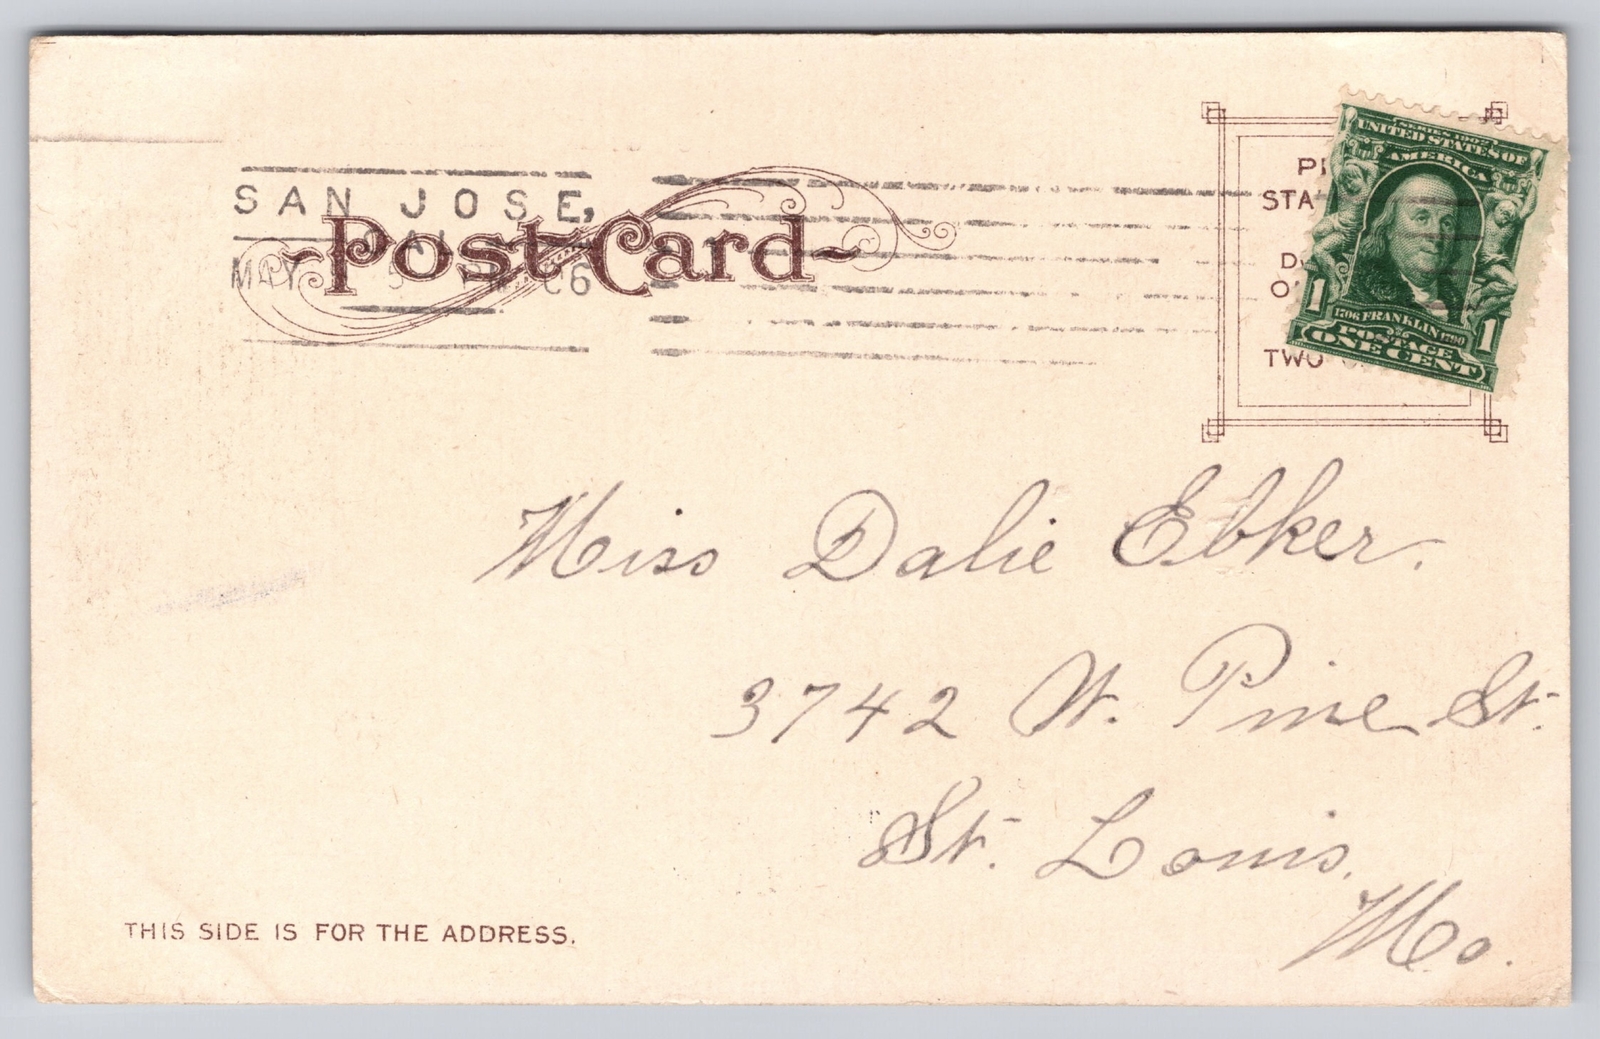 SAN JOSE,
CAL
MAY 5 06
Post Card
SERIES 1902
UNITED STATES OF
AMERICA
1706 FRANKLIN 1790
1 1
POSTAGE
ONE CENT
STA
TWO
Miss Dalie Ebker.
3742 W. Pine St.
St. Louis.
Mo.
THIS SIDE IS FOR THE ADDRESS.